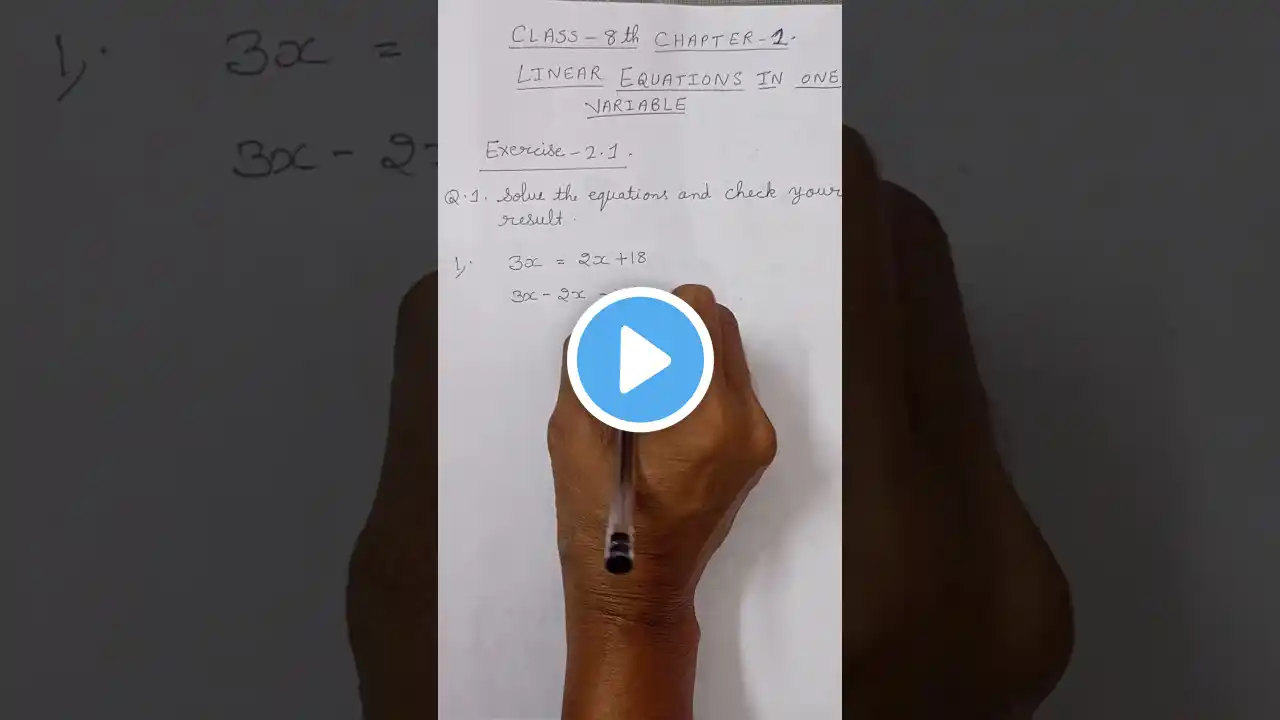 CLASS - 8th CHAPTER - 2.
LINEAR EQUATIONS IN ONE
VARIABLE
Exercise - 2.1.
Q.1. Solve the equations and check your
result.
1, 3x = 2x + 18
3x - 2x